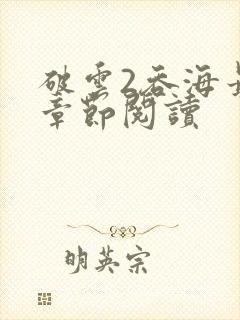 破雲2吞海最
章節閱讀
明英宗